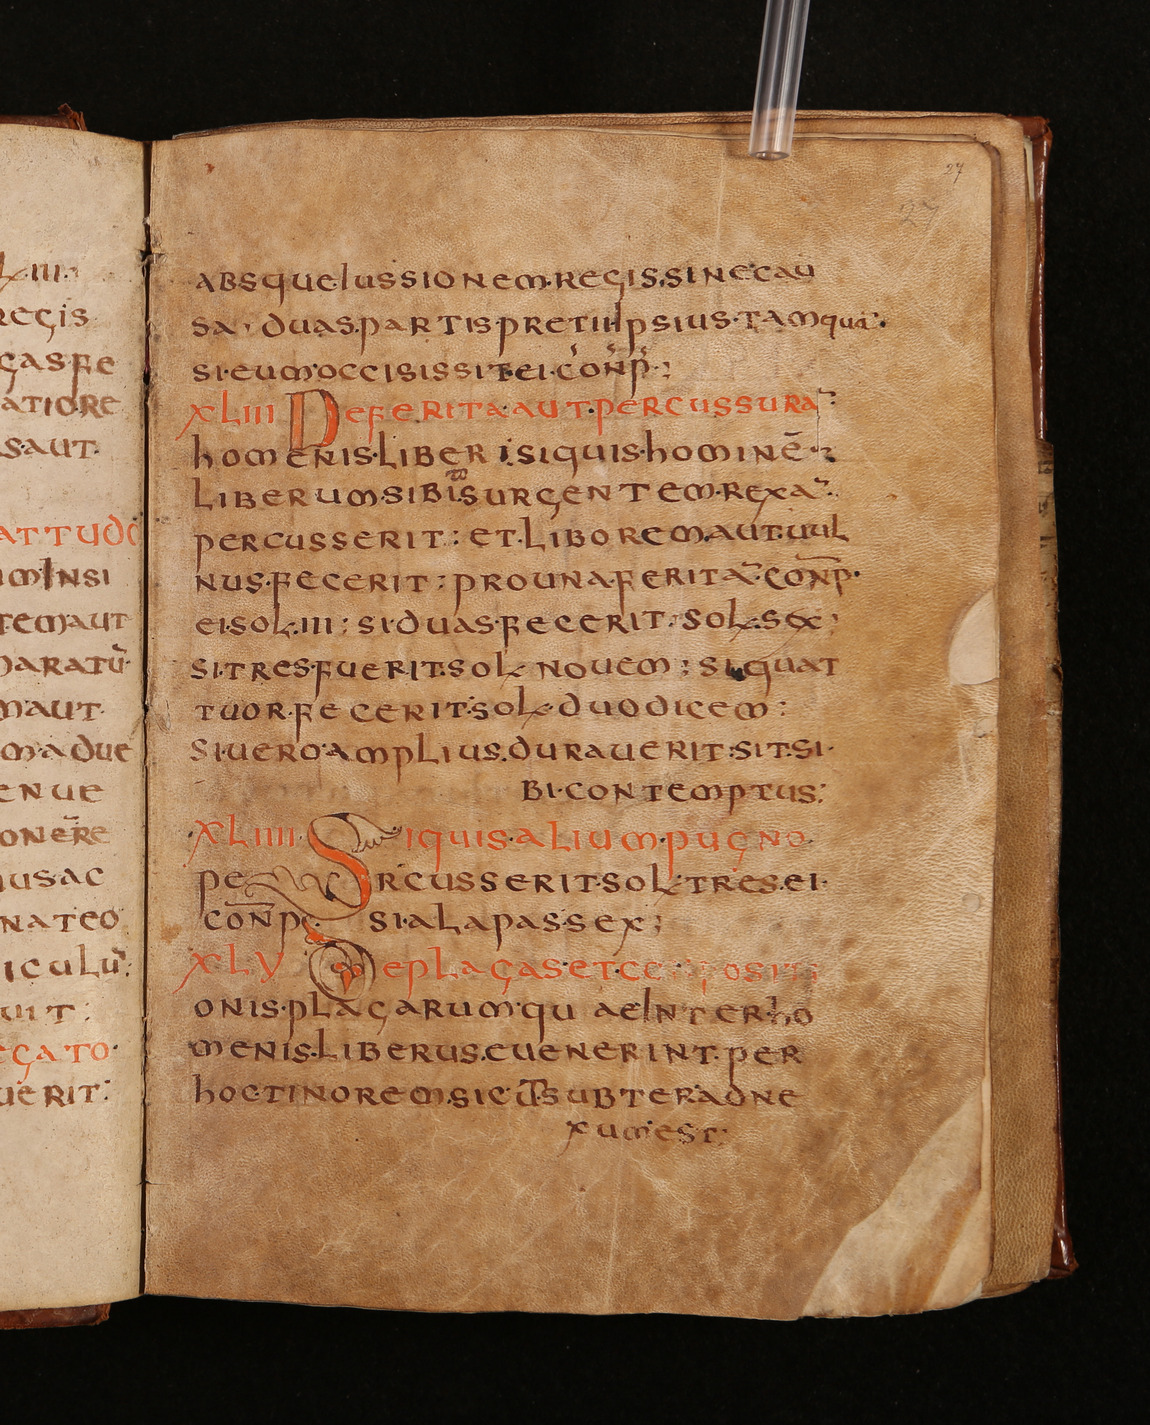 Lxiii
regis
gas fe
atiore
s aut
at tudo
um insi
tem aut
paratū
m aut
m adue
enue
onēre
ius ac
nateo
iculū
uit :
egato
uerit :
27
27
absque iussionem regis sine cau
sa · duas partis pretii ipsius tamquā
si eum occisissit ei cōnp̄ ;
XLIII De ferita aut percussura
homenis liberi si quis hominē
liberum sibi surgentem rexa
percusserit : et liborem aut uul
nus fecerit : pro una ferita cōnp̄
ei sol · III ; si duas fecerit sol · sex ;
si tres fuerit sol nouem ; si quat
tuor fecerit sol duodicem :
si uero amplius durauerit sit si
bi contemptus ;
XLIIII Si quis alium pugno
percusserit sol tres ei
cōnp si alapas sex ;
XLV De plagas et ce posi
onis plagarum quae inter ho
menis liberus euenerint per
hoc tinorem sicut subter adne
xum est ;